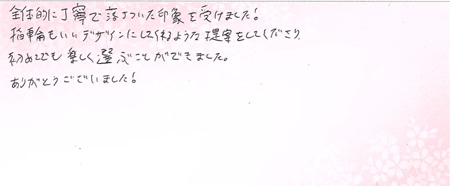 全体的に丁寧で落ちついた印象を受けました!
指輪もいいデザインにしてくれるような提案をしてくださり
初めてでも楽しく選ぶことができました。
ありがとうございました!